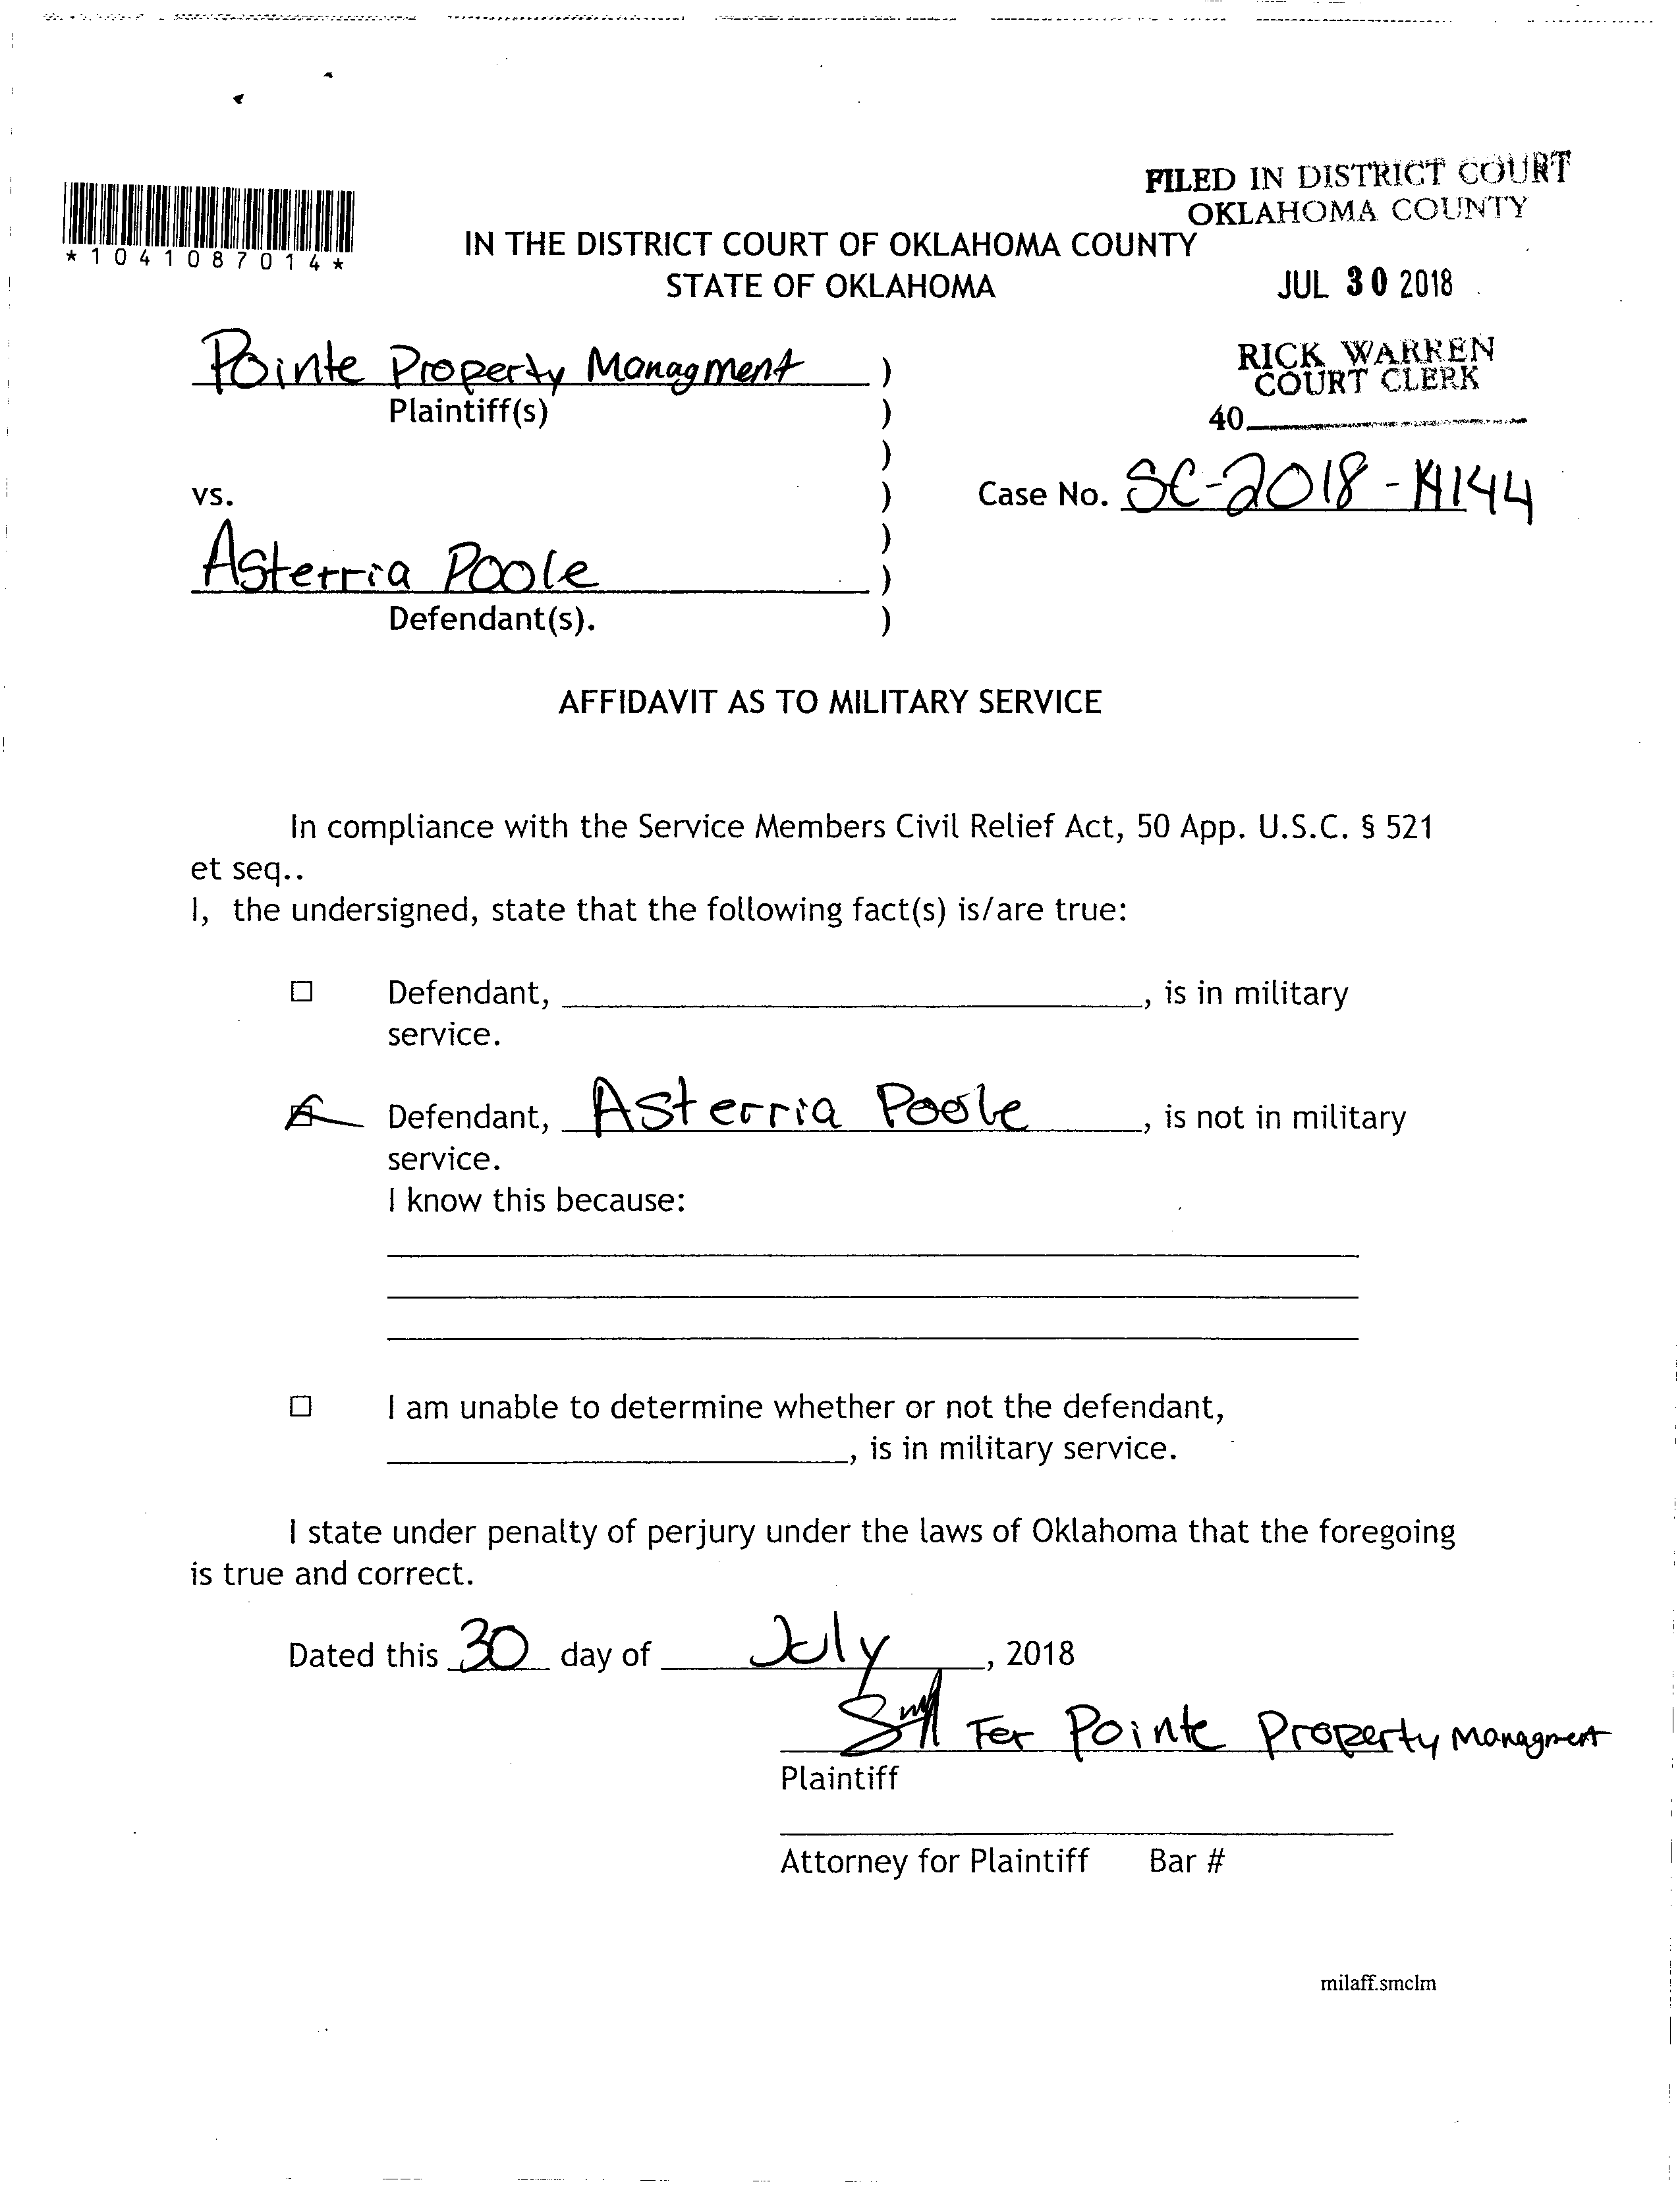 FILED IN DISTRICT COURT
OKLAHOMA COUNTY
*1041087014*
IN THE DISTRICT COURT OF OKLAHOMA COUNTY
STATE OF OKLAHOMA
JUL 30 2018
RICK WARREN
COURT CLERK
40
Pointe Property Managment )
Plaintiff(s) )
)
vs. )
Case No. SC-2018-14144
)
Asterria Poole )
Defendant(s). )
AFFIDAVIT AS TO MILITARY SERVICE
In compliance with the Service Members Civil Relief Act, 50 App. U.S.C. § 521
et seq..
I, the undersigned, state that the following fact(s) is/are true:
☐ Defendant, , is in military
service.
Defendant, Asterria Poole, is not in military
service.
I know this because:
☐ I am unable to determine whether or not the defendant,
, is in military service.
I state under penalty of perjury under the laws of Oklahoma that the foregoing
is true and correct.
Dated this 30 day of July, 2018
For Pointe Property Managment
Plaintiff
Attorney for Plaintiff Bar #
milaff.smclm